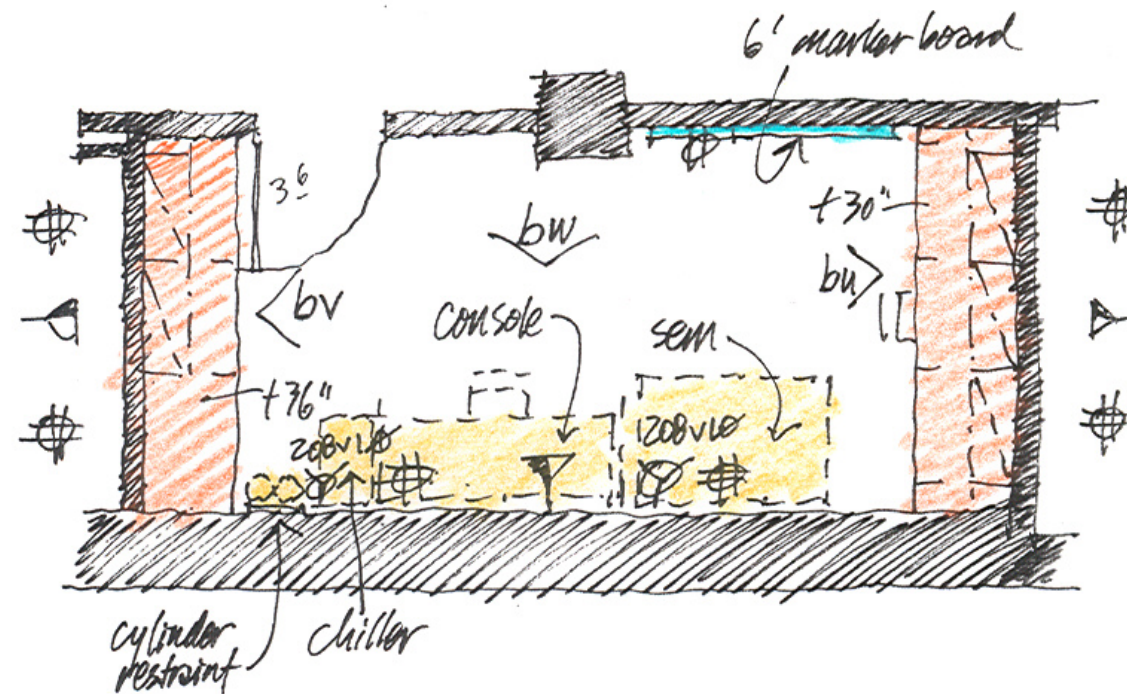 6' marker board
3 6
+30"
bw
bu
bv
console
sem
+36"
208v1ø
120Bv1ø
cylinder
restraint
chiller